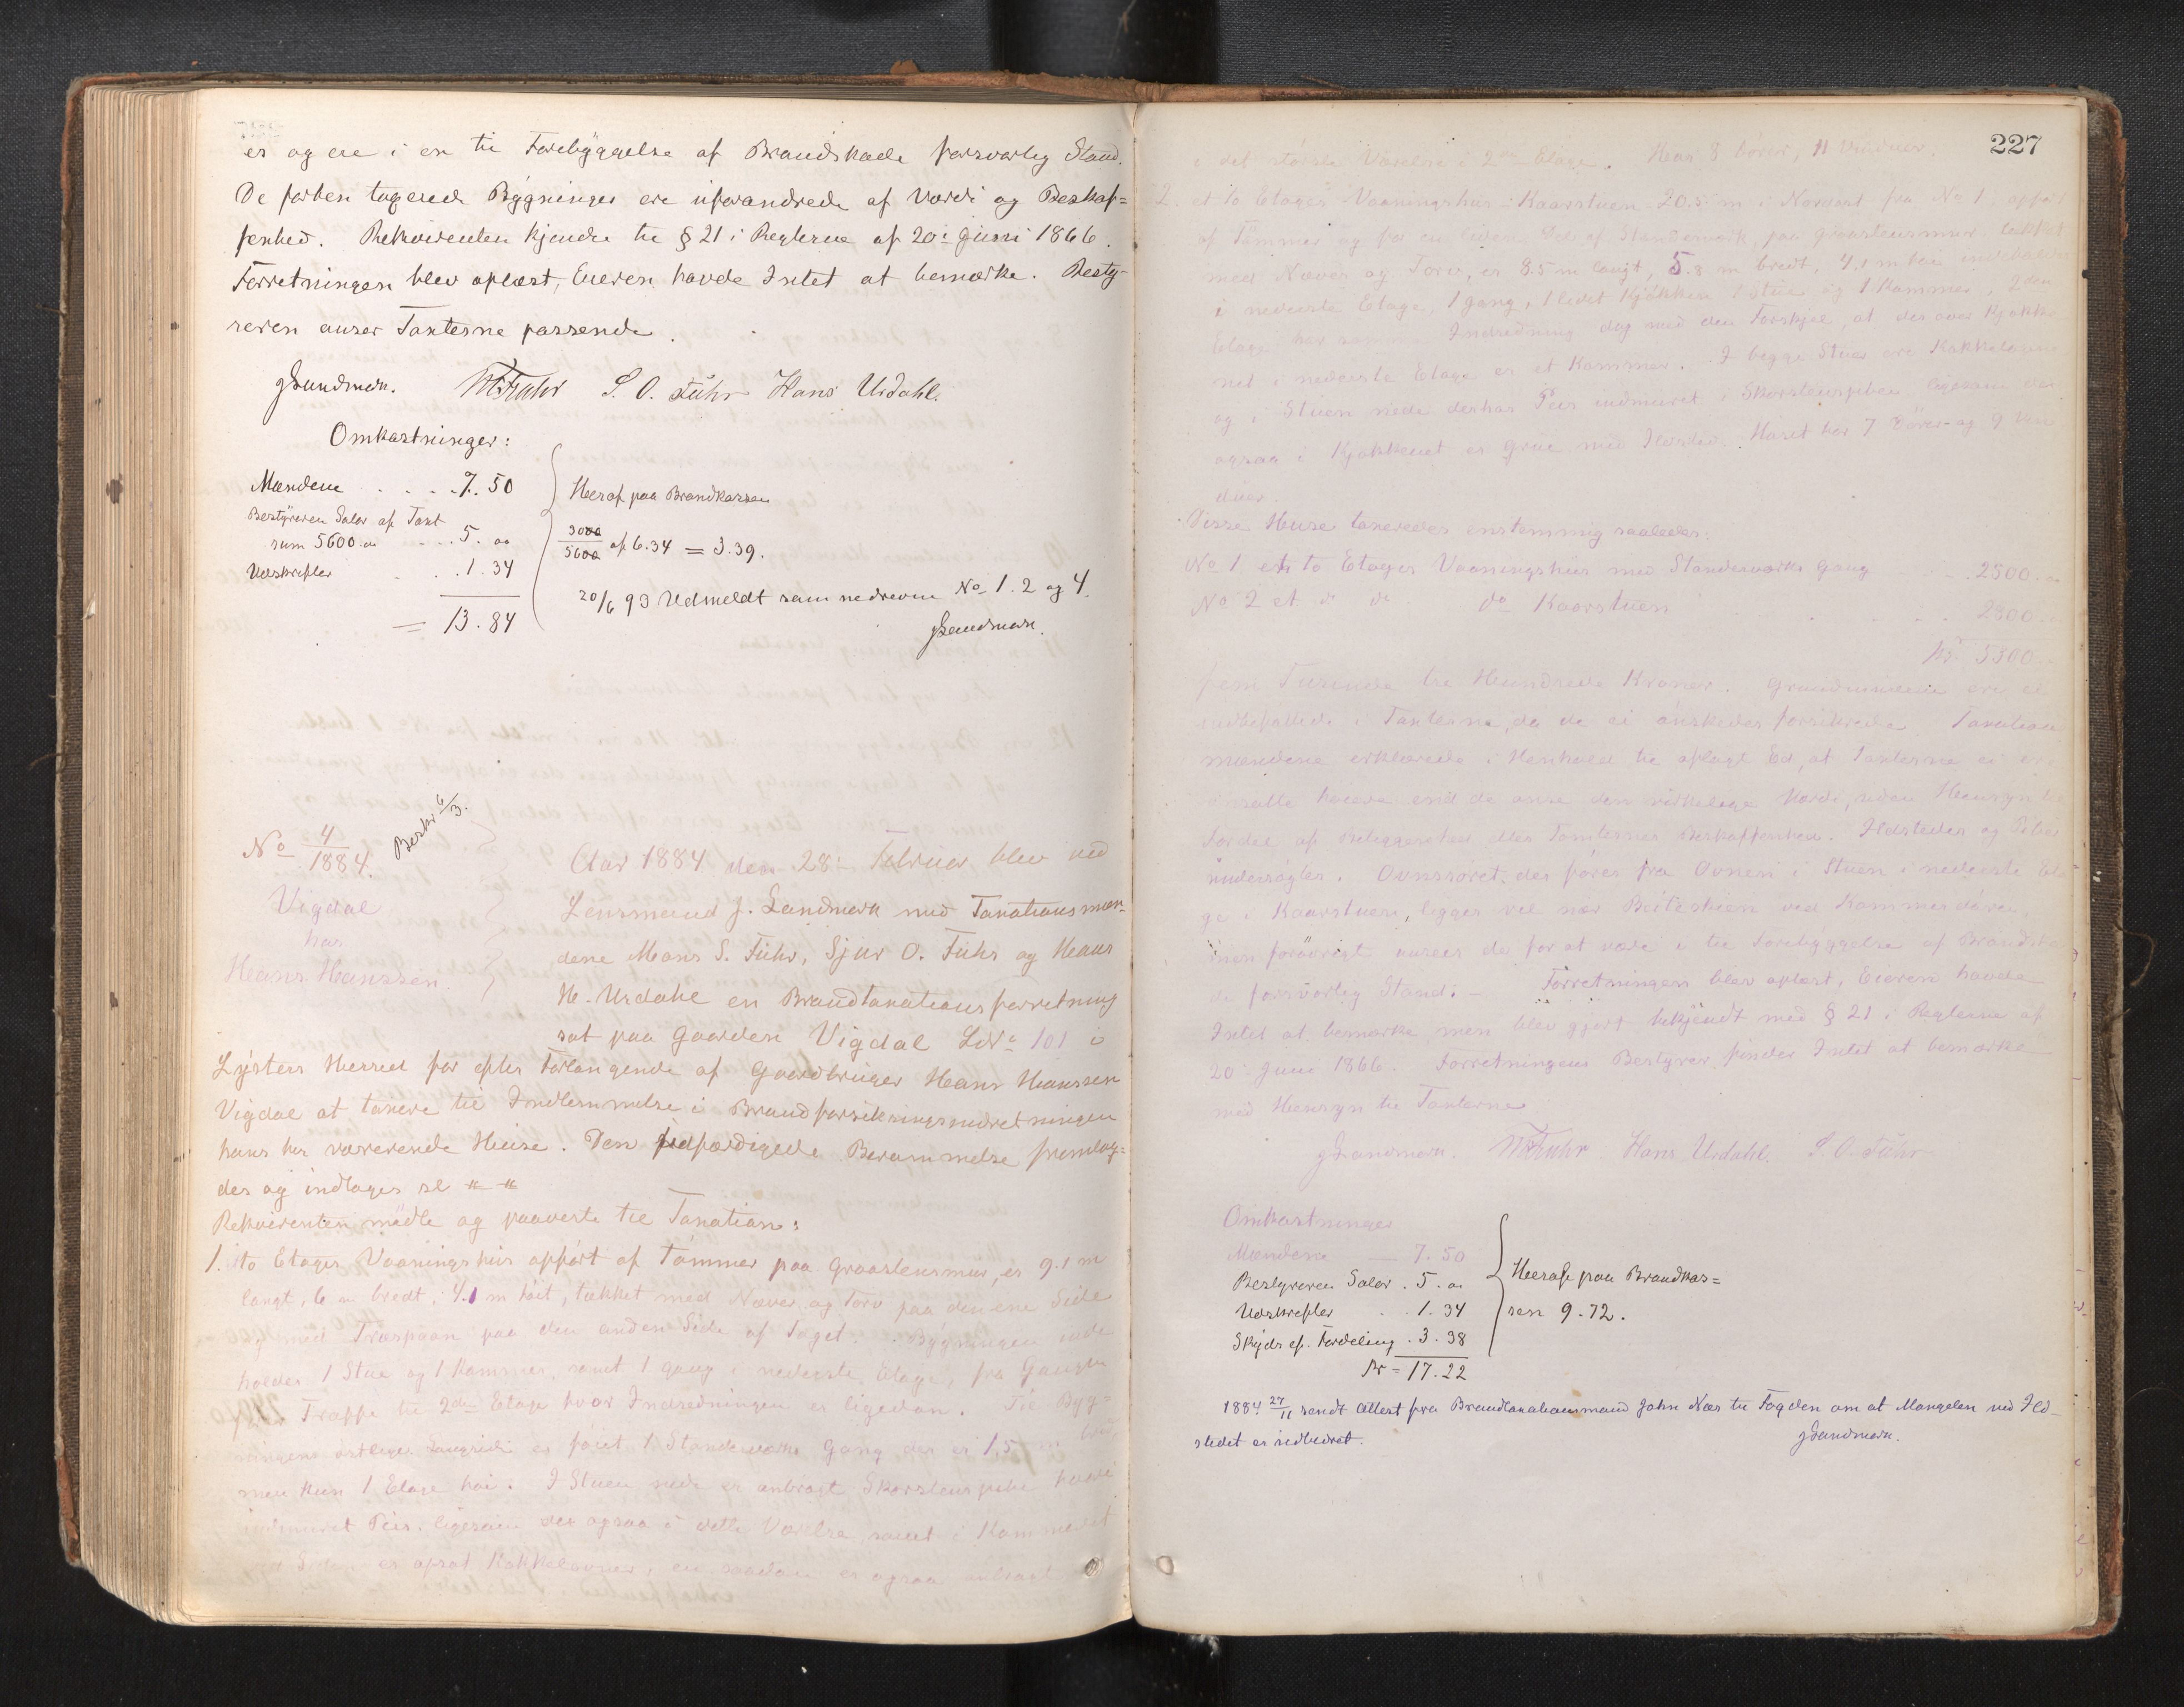 er og ere i en til Forebyggelse af Brandskade forsvarlig Stand.
De forhen taxerede Bygninger ere uforandrede af Værdi og Beskaf=
fenhed. Rekvirenten kjendte til § 21 i Reglerne af 20de Juni 1866.
Forretningen blev oplæst, Eieren havde Intet at bemærke. Besty-
reren anser Taxterne passende.
JLandmark. MSFuhr S. O. Fuhr Hans Urdahl.
Omkostninger:
Mændene . . . . 7. 50
Bestyreren Salær af Taxt
sum 5600.00 . . . 5. 00
Udskrifter . . . 1. 34
= 13. 84
Heraf paa Brandkassen
3000/5600 af 6.34 = 3.39.
20/6 93 Udmeldt som nedrevne No 1. 2 og 4.
JLandmark.
No 4/1884.
Beskr 6/3.
Vigdal
hos
Hans Hanssen.
Aar 1884 den 28de Februar blev ved
Lensmand J. Landmark med Taxationsmæn-
dene Mons S. Fuhr, Sjur O. Fuhr og Hans
H. Urdahl en Brandtaxationsforretning
sat paa Gaarden Vigdal LNo 101 i
Lysters Herred for efter Forlangende af Gaardbruger Hans Hanssen
Vigdal at taxere til Indlemmelse i Brandforsikringsindretningen
hans her værerende Huse. Den udfærdigede Berammelse fremlag-
des og indtages sl " "
Rekvirenten mødte og paaviste til Taxation:
1. to Etages Vaaningshus opført af Tømmer paa Graastensmur, er 9.1 m
langt, 6 m bredt, 4.1 m høit, tækket med Næver og Torv paa den ene Side
og med Træspaan paa den anden Side af Taget. Bygningen inde
holder 1 Stue og 1 Kammer, samt 1 Gang i nederste Etage, fra Gangen
Trappe til 2den Etage hvor Indredningen er ligedan. Til Byg=
ningens østlige Langside er føiet 1 Standerværks Gang der er 1,5 m bred,
men kun 1 Etage høi. I Stuen nede er anbragt Skorstenspibe hvori
indmuret Peis, ligesom der ogsaa i dette Værelse samt i Kammeret
er opsat Kakkelovner, en saadan er ogsaa anbragt
227
i det største Værelse i 2den Etage. Har 8 Døre, 11 Vinduer.
2. et to Etages Vaaningshus - Kaarstuen 20.5 m i Nordost fra No 1, opført
af Tømmer og for en liden Del af Standerværk, paa Graastensmur, tækket
med Næver og Torv, er 8.5 m langt, 5.8 m bredt, 4.1 m høi indeholder
i nederste Etage, 1 Gang, 1 lidet Kjøkken 1 Stue og 1 Kammer, 2den
Etage har samme Indredning dog med den Forskjel, at der over Kjøkke-
net i nederste Etage er et Kammer. I begge Stuer ere Kakkelovne
og i Stuen nede derhos Peis indmuret i Skorstenspiben ligesom der
ogsaa i Kjøkkenet er Grue med Ildsted. Huset har 7 Døre og 9 Vin
duer.
Disse Huse taxeredes enstemmig saaledes:
No 1 et to Etages Vaaningshus med Standerværks Gang . . 2500.00
No 2 et do do do Kaarstuen . . . . 2800.00
Kr. 5300
fem Tusinde tre Hundrede Kroner. Grundmurene ere ei
indbefattede i Taxterne, da de ei ønskedes forsikrede. Taxations
mændene erklærede i Henhold til aflagt Ed, at Taxterne ei er
ansatte høiere end de anse den virkelige Værdi, uden Hensyn til
Fordel af Beliggenhed eller Tomternes Beskaffenhed. Ildsteder og Piber
undersøgtes. Ovnsrøret, der føres fra Ovnen i Stuen i nederste Eta
ge i Kaarstuen, ligger vel nær Beitskien ved Kammersdøren,
men forøvrigt ansees de for at være i til Forebyggelse af Brandska
de forsvarlig Stand. — Forretningen blev oplæst, Eieren havde
Intet at bemærke men blev gjort bekjendt med § 21 i Reglerne af
20de Juni 1866. Forretningens Bestyrer finder Intet at bemærke
med Hensyn til Taxterne
JLandmark. MSFuhr Hans Urdahl. S. O. Fuhr
Omkostninger
Mændene — 7. 50
Bestyreren Salær . 5. 00
Udskrifter . . 1. 34
Skyds ef. Fordeling . 3. 38
Kr = 17. 22
Heraf paa Brandkas=
sen 9.72.
1884 27/11 sendt Attest fra Brandtaxationsmand John Næs til Fogden om at Mangelen ved Ild-
stedet er udbedret. JLandmark.